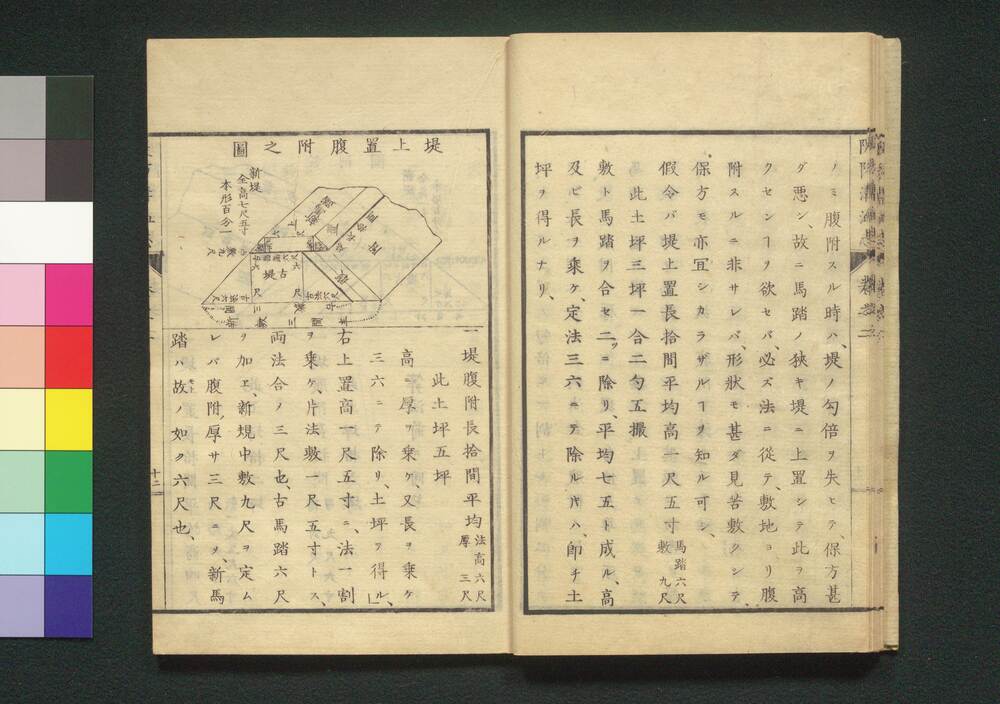 ノミ腹附スル時ハ、堤ノ勾倍ヲ失ヒテ、保方甚
ダ悪シ、故ニ馬踏ノ狹キ堤ニ上置シテ此ヲ高
クセンヿヲ欲セバ、必ズ法ニ從テ、敷地ヨリ腹
附スルニ非サレバ、形狀モ甚ダ見苦敷クシテ、
保方モ亦宜シカラザルヿヲ知ル可シ、
假令バ堤上置長拾間平均高一尺五寸 馬踏六尺 敷九尺
此土坪三坪一合二勺五撮
敷ト馬踏ヲ合セ、二ツニ除リ、平均七五ト成ル、高
及ビ長ヲ乘ケ、定法三六ニテ除ルトキハ、卽チ土
坪ヲ得ルナリ、
堤上置腹附之圖
新堤
全高七尺五寸
本形百分一
古堤
一堤腹附長拾間平均 法高六尺 厚三尺
此土坪五坪
高ニ厚ヲ乘ケ又長ヲ乘ケ
三六ニテ除リ、土坪ヲ得ル、
右上置高一尺五寸ニ、法一割
ヲ乘ケ、片法敷一尺五寸トス、
両法合ノ三尺也、古馬踏六尺
ヲ加エ、新規中敷九尺ヲ定ム
レバ腹附ノ厚サ三尺ニヲ、新馬
踏ハ故ノ如ク六尺也、
十二